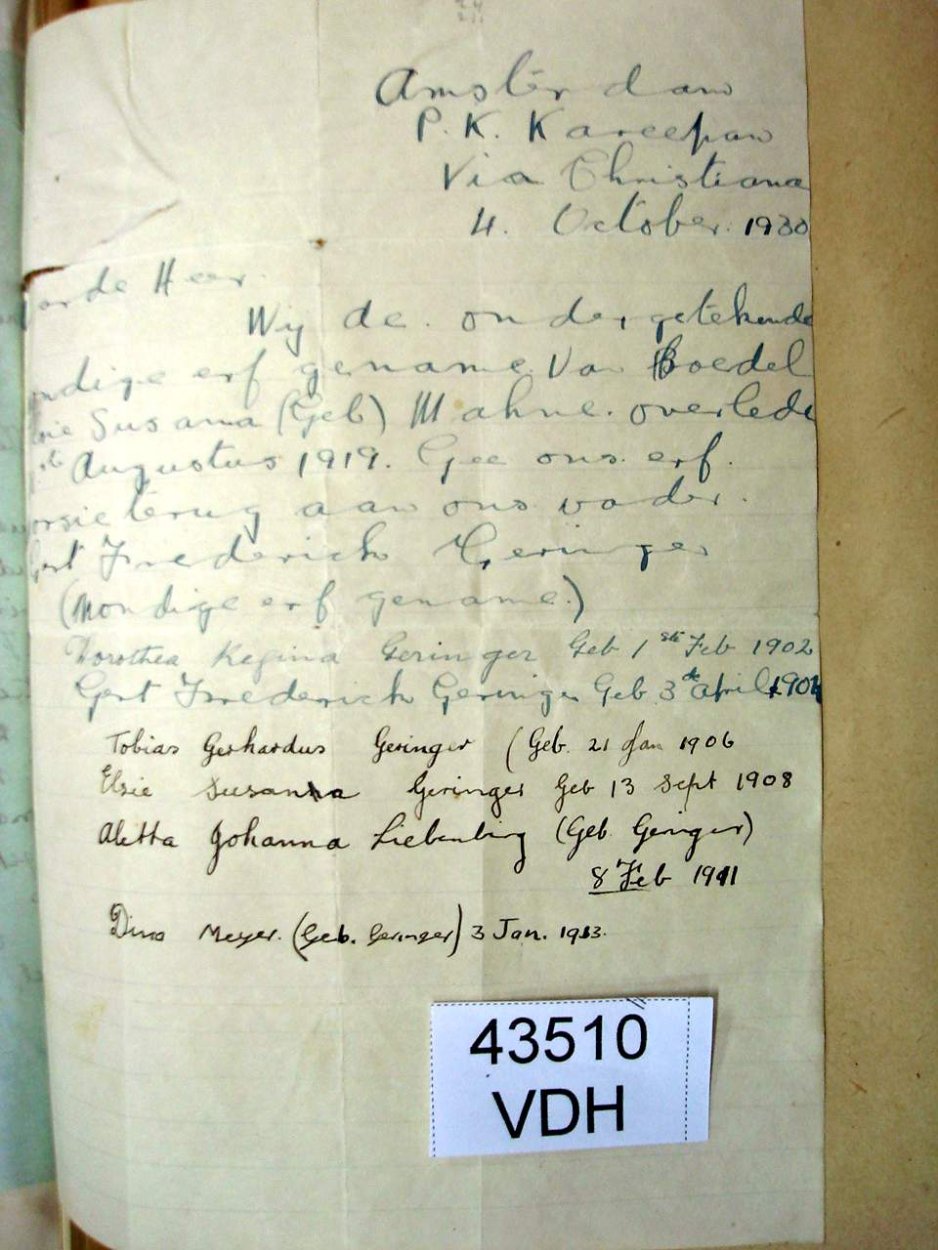 Amsterdam
P. K. Kareepan
Via Christiana
4. October. 1930
arde Heer.
Wy de. onder, getekende
ndige erf gename Van Boedel
sie Susana (Geb) Mahne. overlede
Augustus 1919. Gee ons. erf.
orsie terug aan ons vader.
Gert Frederick Geringer
(Mondige erf gename.)
Dorothea Regina Geringer Geb 1st Feb 1902
Gert Frederick Geringer Geb 3de April 1904
Tobias Gerhardus Geringer (Geb. 21 Jan 1906
Elsie Susanna Geringer Geb 13 Sept 1908
Aletta Johanna Liebenberg (Geb. Geringer)
8 Feb 1911
Dina Meyer. (Geb. Geringer) 3 Jan. 1913.
43510
VDH